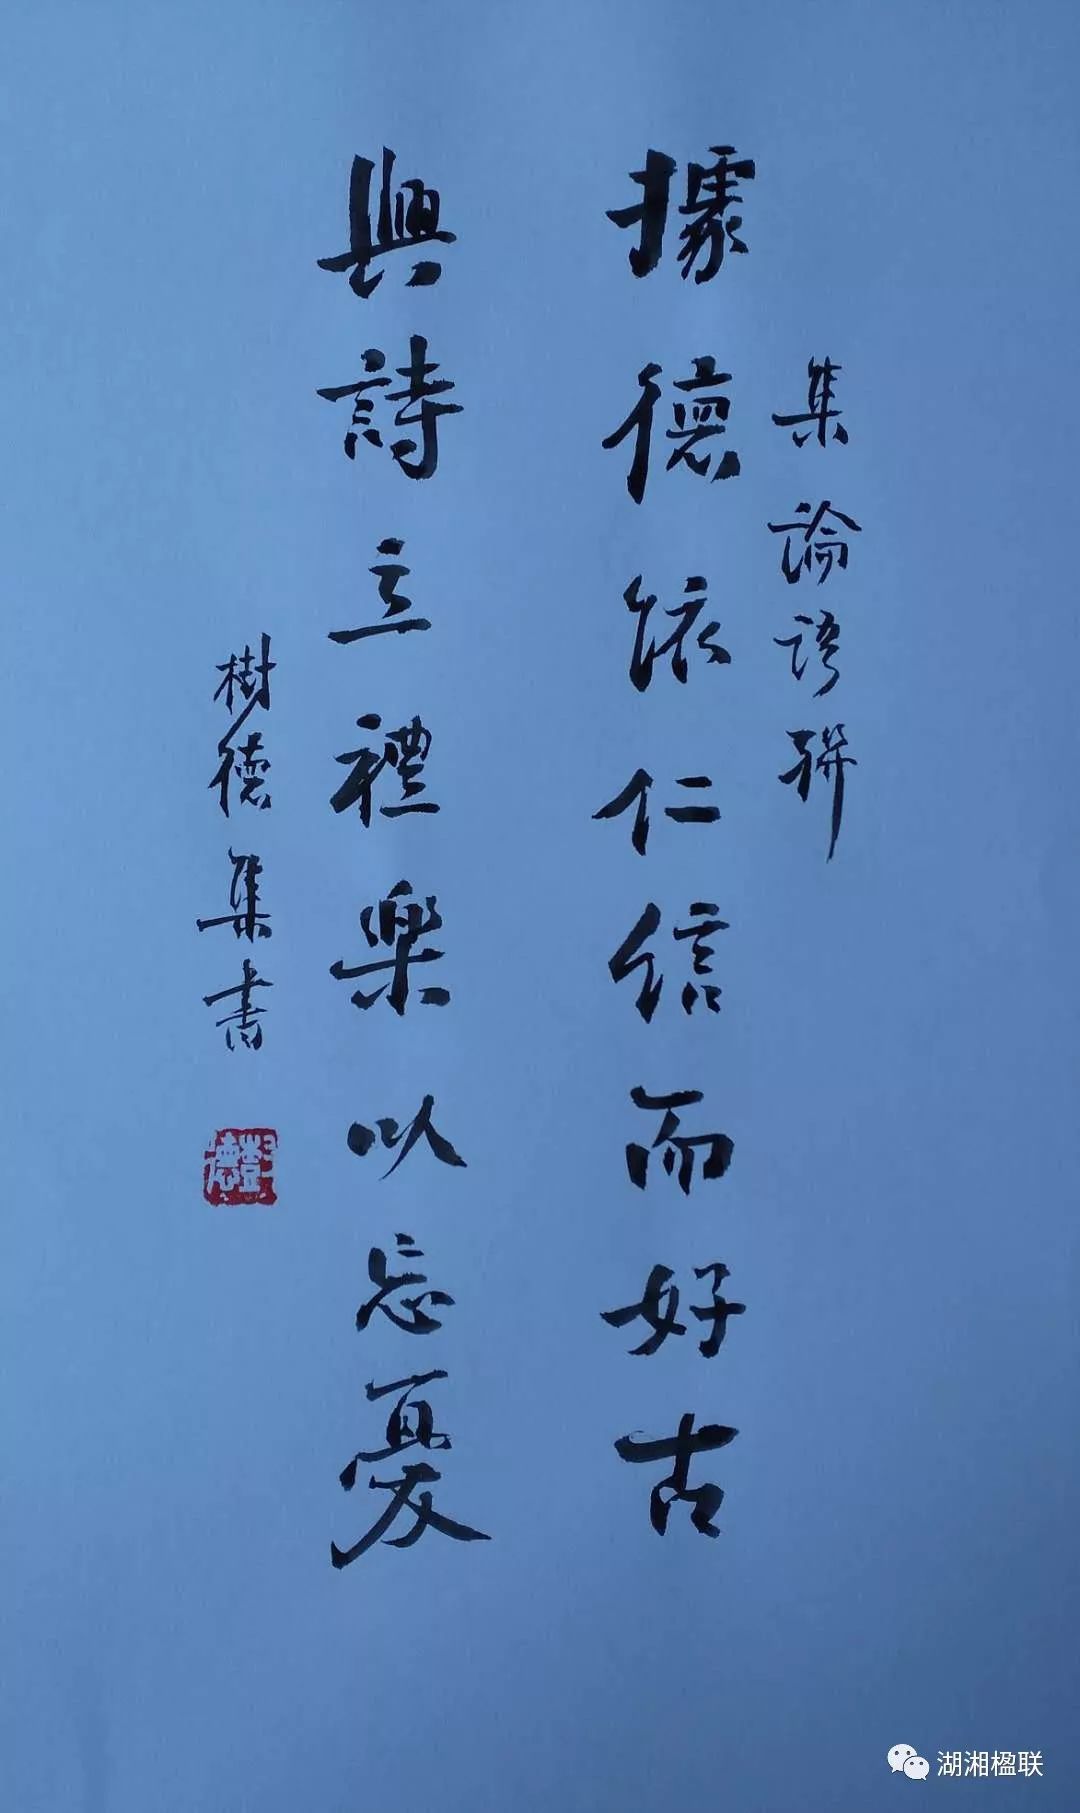 集論語聯
據德依仁信而好古
興詩立禮樂以忘憂
樹德集書
湖湘楹联